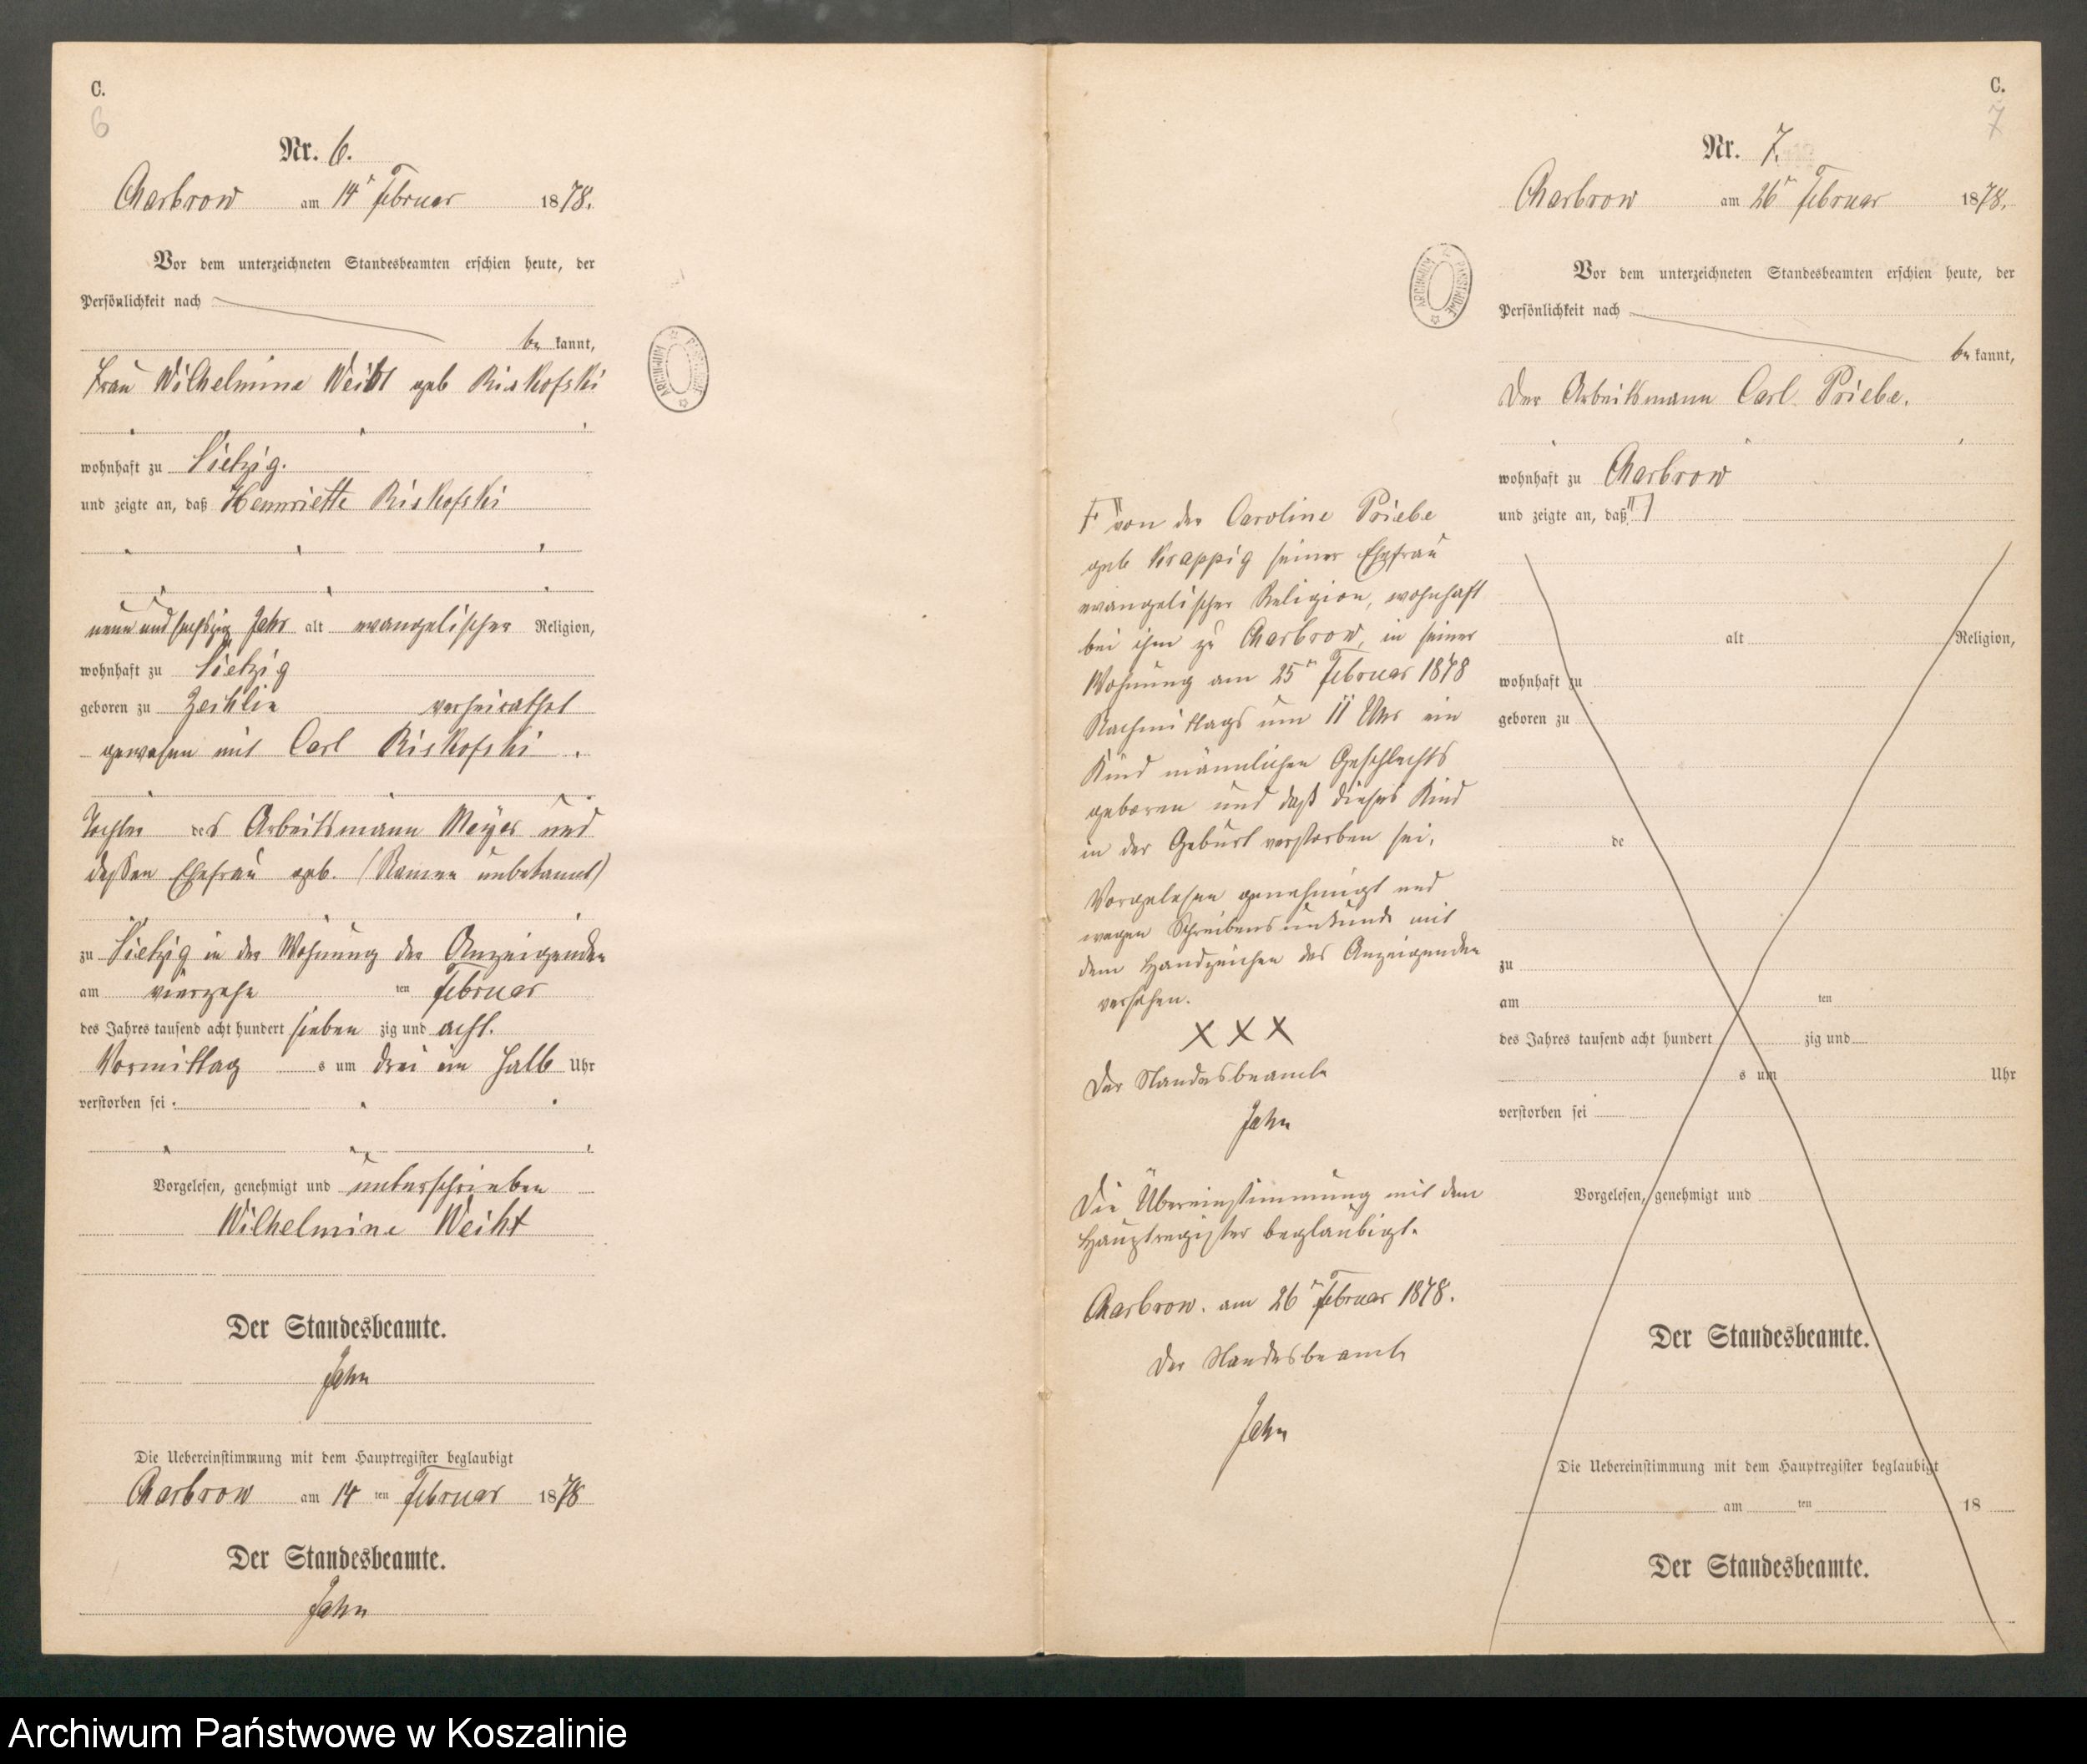 C.
6
Nr. 6.
Charbrow am 14ᵗ Februar 1878.
Vor dem unterzeichneten Standesbeamten erschien heute, der
Persönlichkeit nach
be kannt,
Frau Wilhelmine Weiht geb Riskofski
wohnhaft zu Vietzig.
und zeigte an, daß Hennriette Riskofski
neun und sechszig Jahr alt evangelischer Religion,
wohnhaft zu Vietzig
geboren zu verheirathet
gewesen mit Carl Riskofski
Tochter des Arbeitsmann Meyer und
dessen Ehefrau geb. (Namen unbekannt)
zu Vietzig in der Wohnung der Anzeigenden
am vierzehn ten Februar
des Jahres tausend acht hundert sieben zig und acht.
Vormittag s um drei ein halb Uhr
verstorben sei
Vorgelesen, genehmigt und unterschrieben
Wilhelmine Weiht
Der Standesbeamte.
Jahn
Die Uebereinstimmung mit dem Hauptregister beglaubigt
Charbrow am 14 ten Februar 1878
Der Standesbeamte.
Jahn
ARCHIWUM PAŃSTWOWE
C.
7
Nr. 7.
Charbrow am 26ᵗ Februar 1878.
Vor dem unterzeichneten Standesbeamten erschien heute, der
Persönlichkeit nach
be kannt,
Der Arbeitsmann Carl Priebe.
wohnhaft zu Charbrow
und zeigte an, daß
alt Religion,
wohnhaft zu
geboren zu
de
zu
am ten
des Jahres tausend acht hundert zig und
s um Uhr
verstorben sei
Vorgelesen, genehmigt und
Der Standesbeamte.
Die Uebereinstimmung mit dem Hauptregister beglaubigt
am ten 18
Der Standesbeamte.
ARCHIWUM PAŃSTWOWE
von der Caroline Priebe
geb Krappig seiner Ehefrau
evangelischer Religion, wohnhaft
bei ihm zu Charbrow, in seiner
Wohnung am 25ᵗ Februar 1878
Nachmittags um 11 Uhr ein
Kind männlichen Geschlechts
geboren und daß dieses Kind
in der Geburt verstorben sei.
Vorgelesen genehmigt und
wegen Schreibensunkunde mit
dem Handzeichen des Anzeigenden
versehen.
X X X
Der Standesbeamte
Jahn
Die Übereinstimmung mit dem
Hauptregister beglaubigt.
Charbrow. am 26ᵗ Februar 1878.
Der Standesbeamte
Jahn
Archiwum Państwowe w Koszalinie